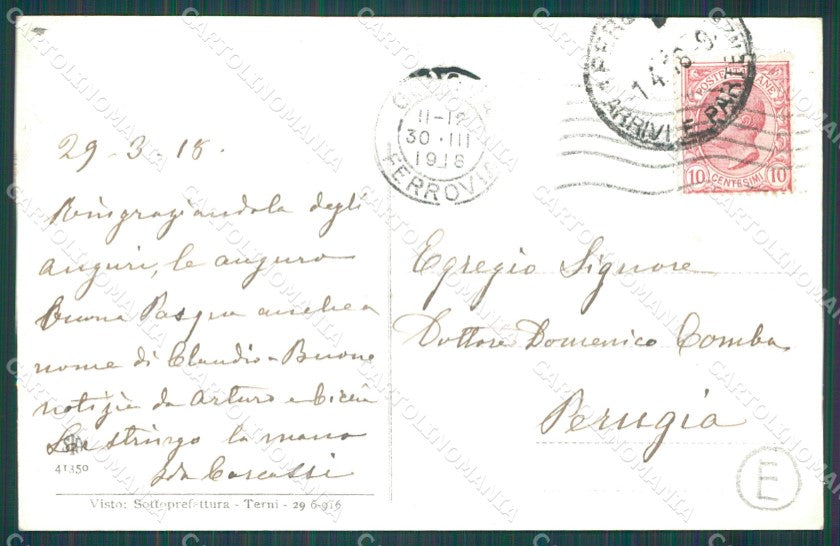 29-3-18.
Ringraziandola degli
auguri, le auguro
Buona Pasqua anche a
nome di Claudio. Buone
notizie da Arturo e
La stringo la mano
41350
Visto: Sottoprefettura - Terni - 29 6-916
11-12
30·III
1918
FERROVIA
1 4 18
ARRIVI E PARTENZE
POSTE ITALIANE
10 CENTESIMI 10
Egregio Signore
Dottore Domenico Comba
Perugia
E
CARTOLINOMANIA